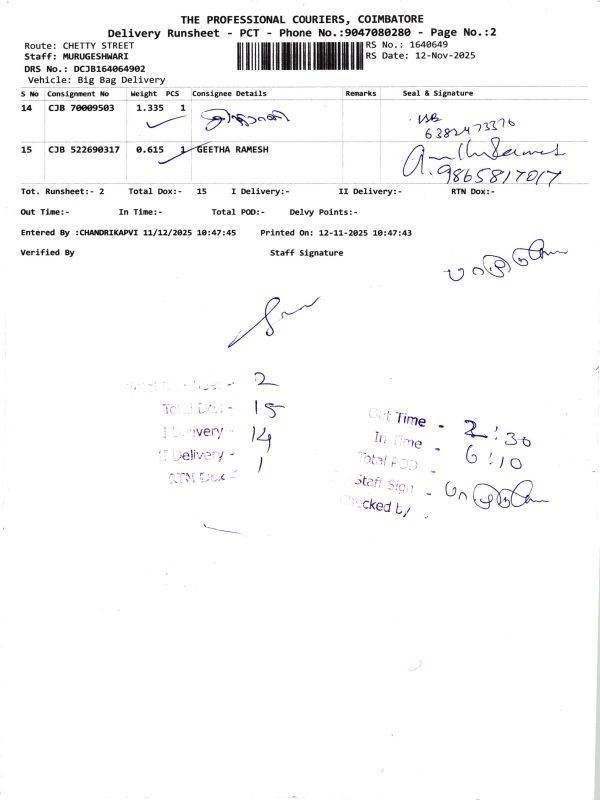 THE PROFESSIONAL COURIERS, COIMBATORE
Delivery Runsheet - PCT - Phone No.:9047080280 - Page No.:2
Route: CHETTY STREET
RS No.: 1640649
Staff: MURUGESHWARI
RS Date: 12-Nov-2025
DRS No.: DCJB164064902
Vehicle: Big Bag Delivery
S No Consignment No Weight PCS Consignee Details Remarks Seal & Signature
14 CJB 70009503 1.335 1
6382473376
15 CJB 522690317 0.615 1 GEETHA RAMESH
9865817017
Tot. Runsheet:- 2 Total Dox:- 15 I Delivery:- II Delivery:- RTN Dox:-
Out Time:- In Time:- Total POD:- Delvy Points:-
Entered By :CHANDRIKAPVI 11/12/2025 10:47:45 Printed On: 12-11-2025 10:47:43
Verified By Staff Signature
2
Total Dox - 15
I Delivery - 14
II Delivery - 1
RTN Dox -
Out Time - 2:30
In Time - 6:10
Total POD -
Staff Sign -
Checked by